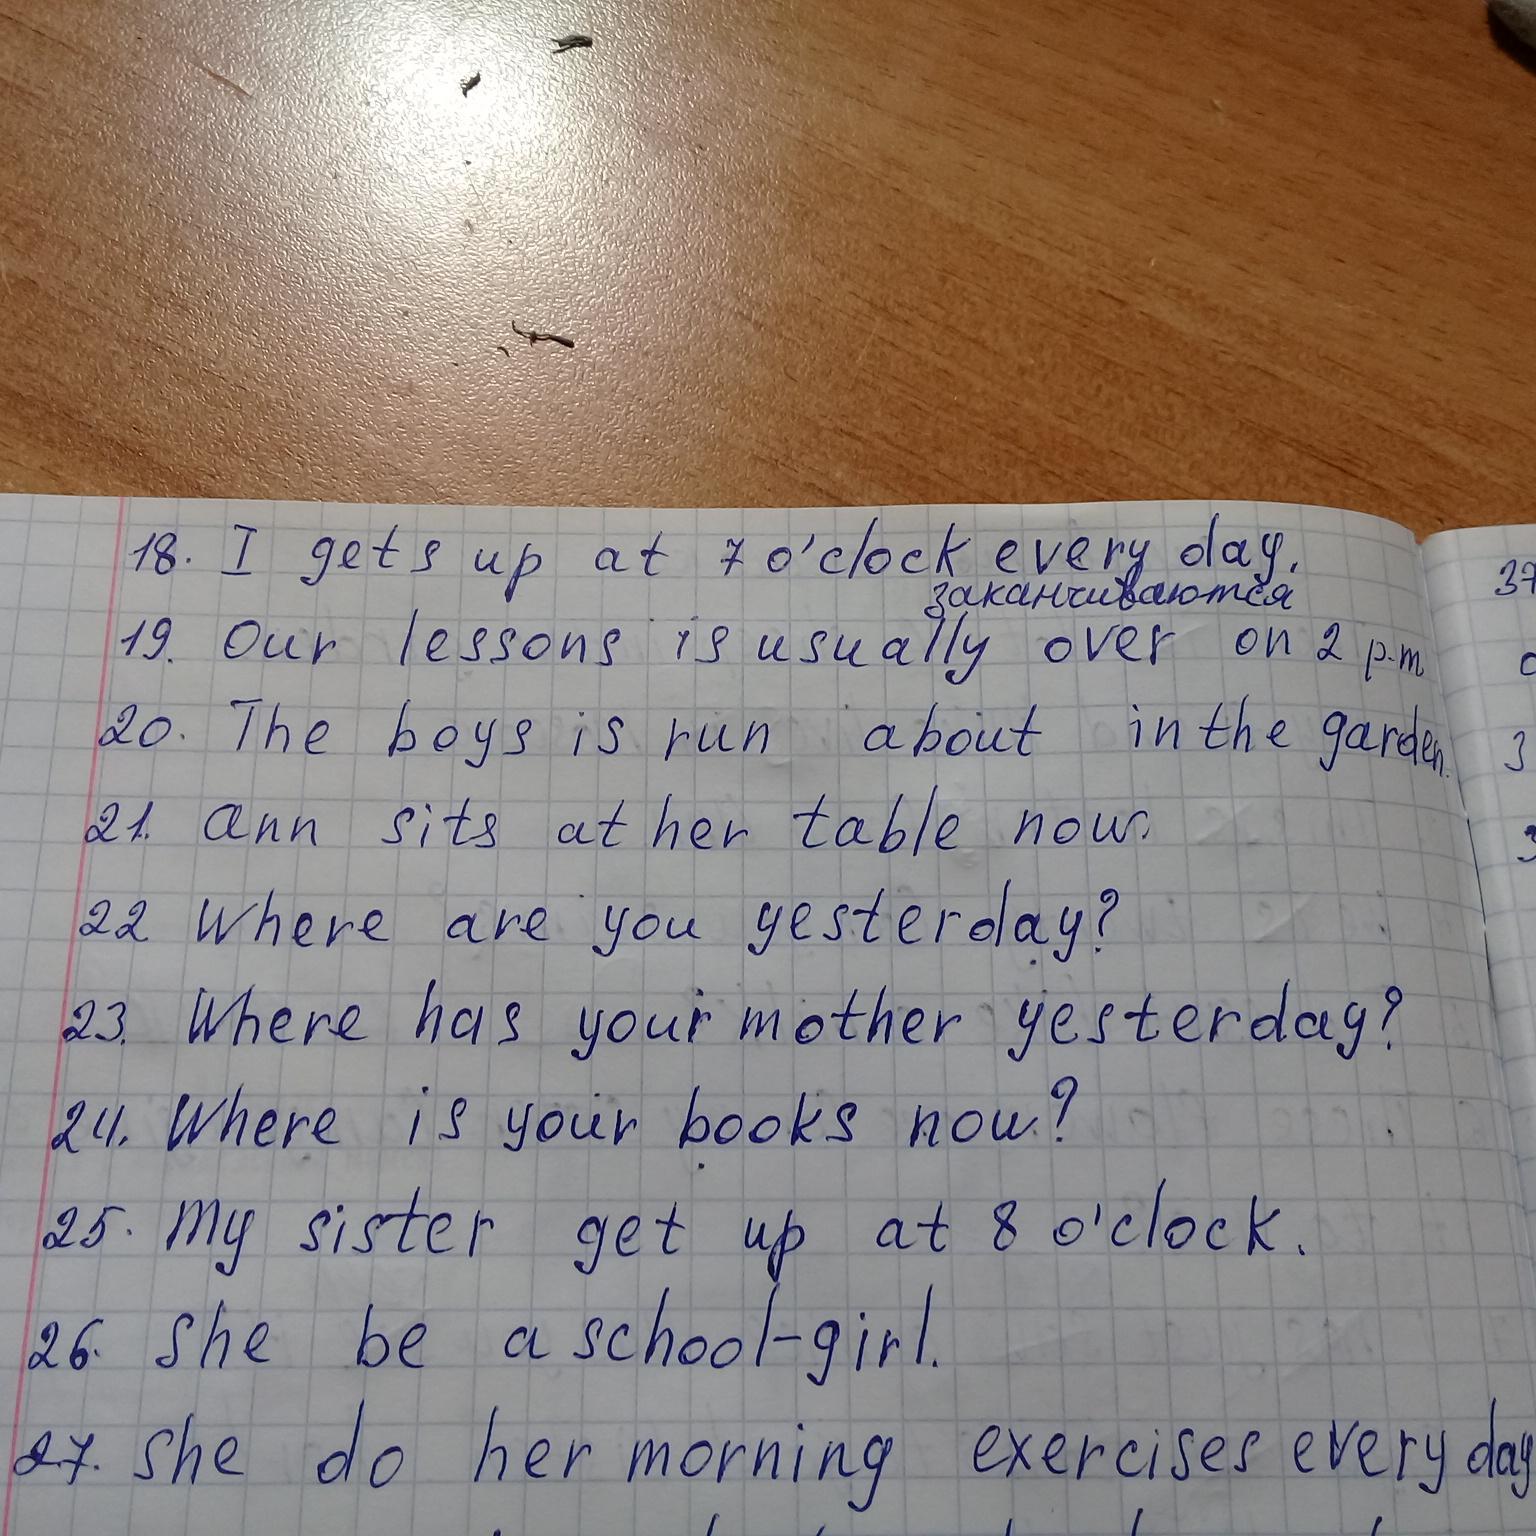 18. I gets up at 7 o'clock every day.
заканчиваются
19. Our lessons is usually over on 2 p.m
20. The boys is run about in the garden.
21. Ann sits at her table now.
22 Where are you yesterday?
23. Where has your mother yesterday?
24. Where is your books now?
25. My sister get up at 8 o'clock.
26. She be a school-girl.
27. She do her morning exercises every day
37
3